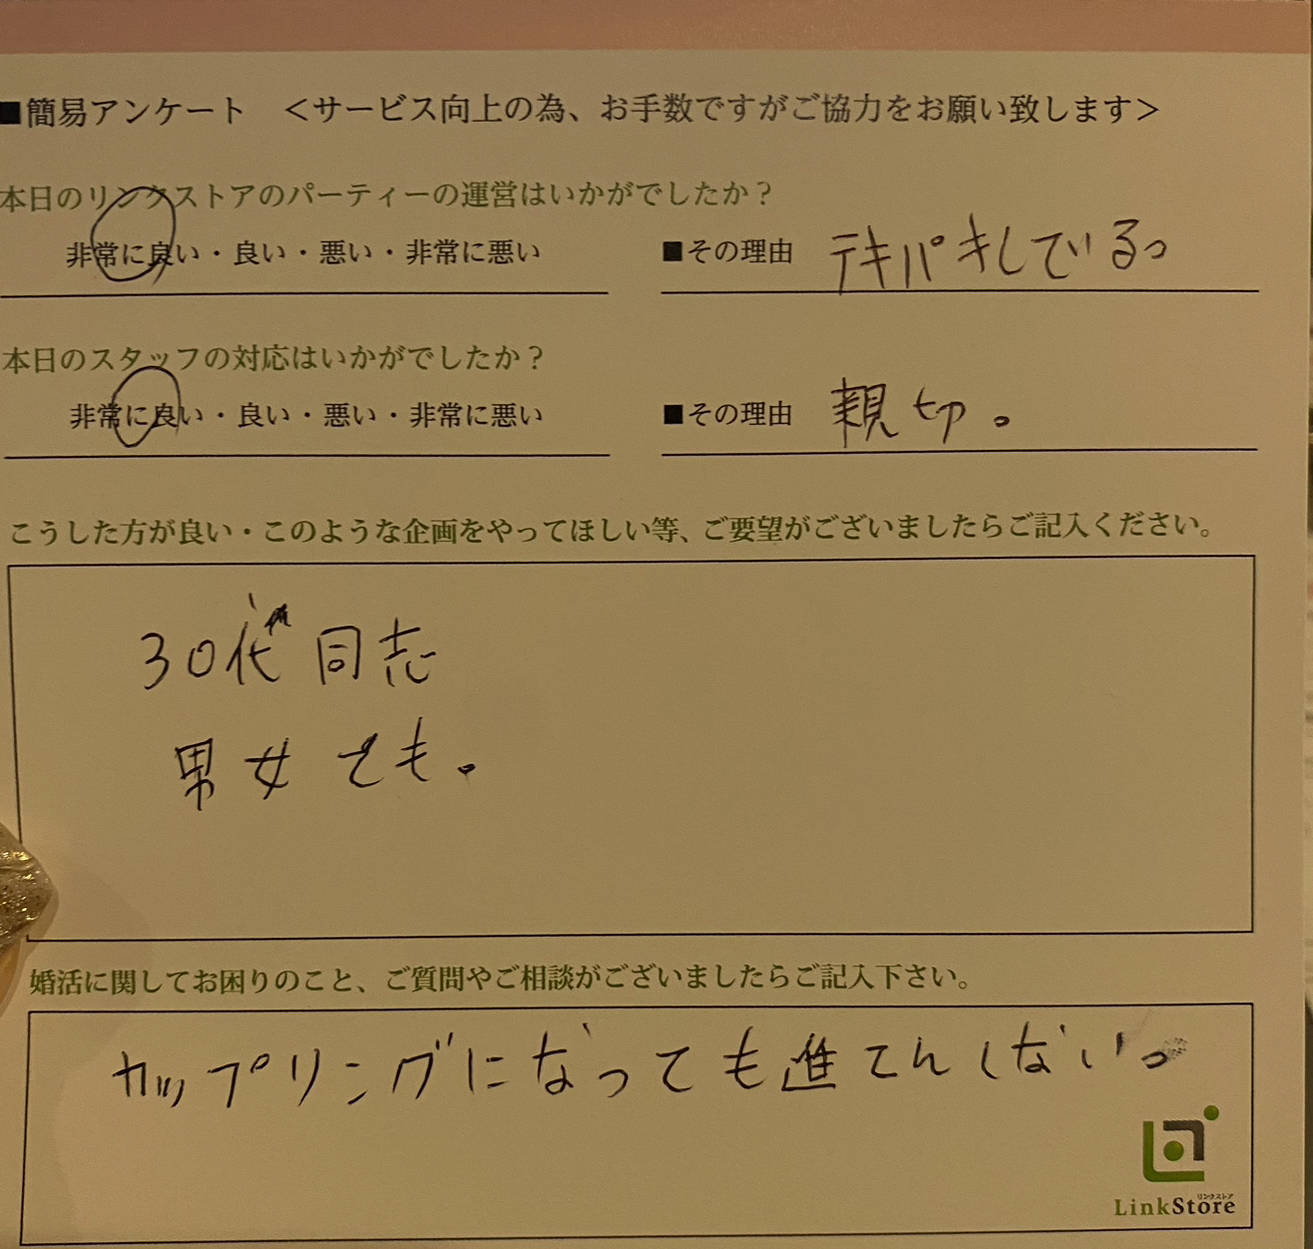 ■簡易アンケート ＜サービス向上の為、お手数ですがご協力をお願い致します＞
本日のリンクストアのパーティーの運営はいかがでしたか？
非常に良い・良い・悪い・非常に悪い ■その理由 テキパキしている。
本日のスタッフの対応はいかがでしたか？
非常に良い・良い・悪い・非常に悪い ■その理由 親切。
こうした方が良い・このような企画をやってほしい等、ご要望がございましたらご記入ください。
30代同志
男女とも。
婚活に関してお困りのこと、ご質問やご相談がございましたらご記入下さい。
カップリングになっても進てんしない。
リンクストア
LinkStore